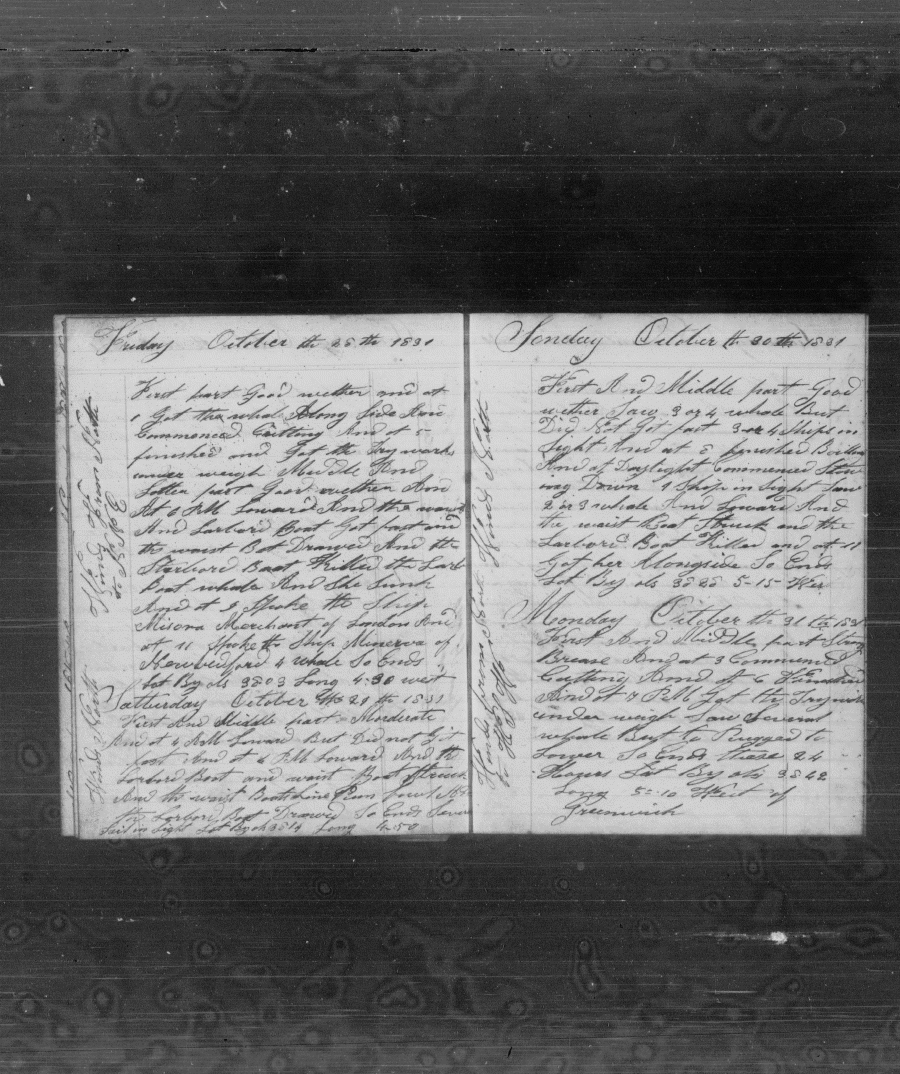 Friday October th 28 th 1831
First part Good wether and at
1 Got the whal Along Side And
Commenced Cutting And at 5
finished and Got the Try works
under weigh Middle And
Latter part Good wether And
At 6 AM Loward And the waist
And Larbord Boat Got fast and
the waist Bot Drawed And the
Starbord Boat Killed the Larb
Boat whale And She Sunk
And at 9 Spoke the Ship
Merchant of London And
at 11 Spoke th Ship Minerva of
4 whale So Ends
Lat By obs 38 03 Long 4-30 west
Satturday October th 29 th 1831
First And Middle part Morderate
And at 4 PM Loward But Did not Git
fast And at 6 AM Loward And the
Larbord Boat and waist Boat Struck
And the waist Boats Line
the Larbord Boat Drawed So Ends
Sail in Sight Lat By ob 38 14 Long 4-50
Wind From North
Winds North
Sonday October th 30 th 1831
First And Middle part Good
wether Saw 3 or 4 whale But
Did Not Got fast 3 or 4 Ships in
Sight And at 5 finished Boiling
And at Daylight Commenced Stow
ing Down 1 Ship in Sight Saw
2 or 3 whale And Loward And
the waist Boat Struck and the
Larbord Boat Killed and at 11
Got her Alongside So Ends
Lat By obs 38 28 5-15 Wes
Monday October th 31 th 1831
First And Middle part Strong
Brease And at 3 Commenced
Cutting And at 6 finished
And at 7 PM Got the Tryworks
under weigh Saw Several
whale But to Rugged to
Lower So Ends these 24
Howers Lat By obs 38 42
Long 5-10 West of
Greenwich
Winds from North